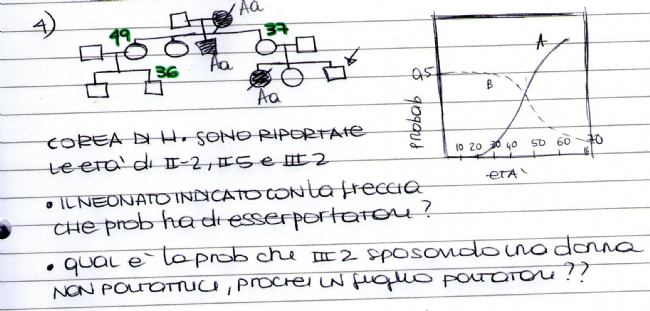 4)
Aa
49
37
Aa
36
Aa
A
B
0,5
probab
10 20 30 40 50 60 70
ETA'
COREA DI H. SONO RIPORTATE
LE ETA' DI II-2, II5 E III2
• IL NEONATO INDICATO CON LA FRECCIA
CHE PROB HA DI ESSER PORTATORE?
• QUAL E' LA PROB CHE III2 SPOSANDO UNA DONNA
NON PORTATRICE, PROCREI UN FIGLIO PORTATORE??